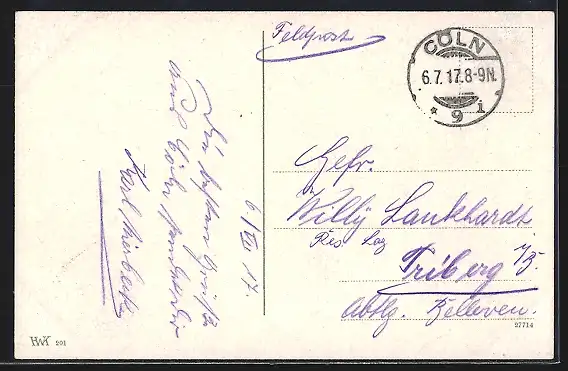 Feldpost
CÖLN
6.7.17.8-9N.
* 9 i
6/VII 17.
Die besten Grüße
aus Cöln sendet Dir
Karl
Gefr.
Willy Lankhardt
Res. Laz
Triberg i/B.
Abtlg. Bellevue.
HWK 201
27714